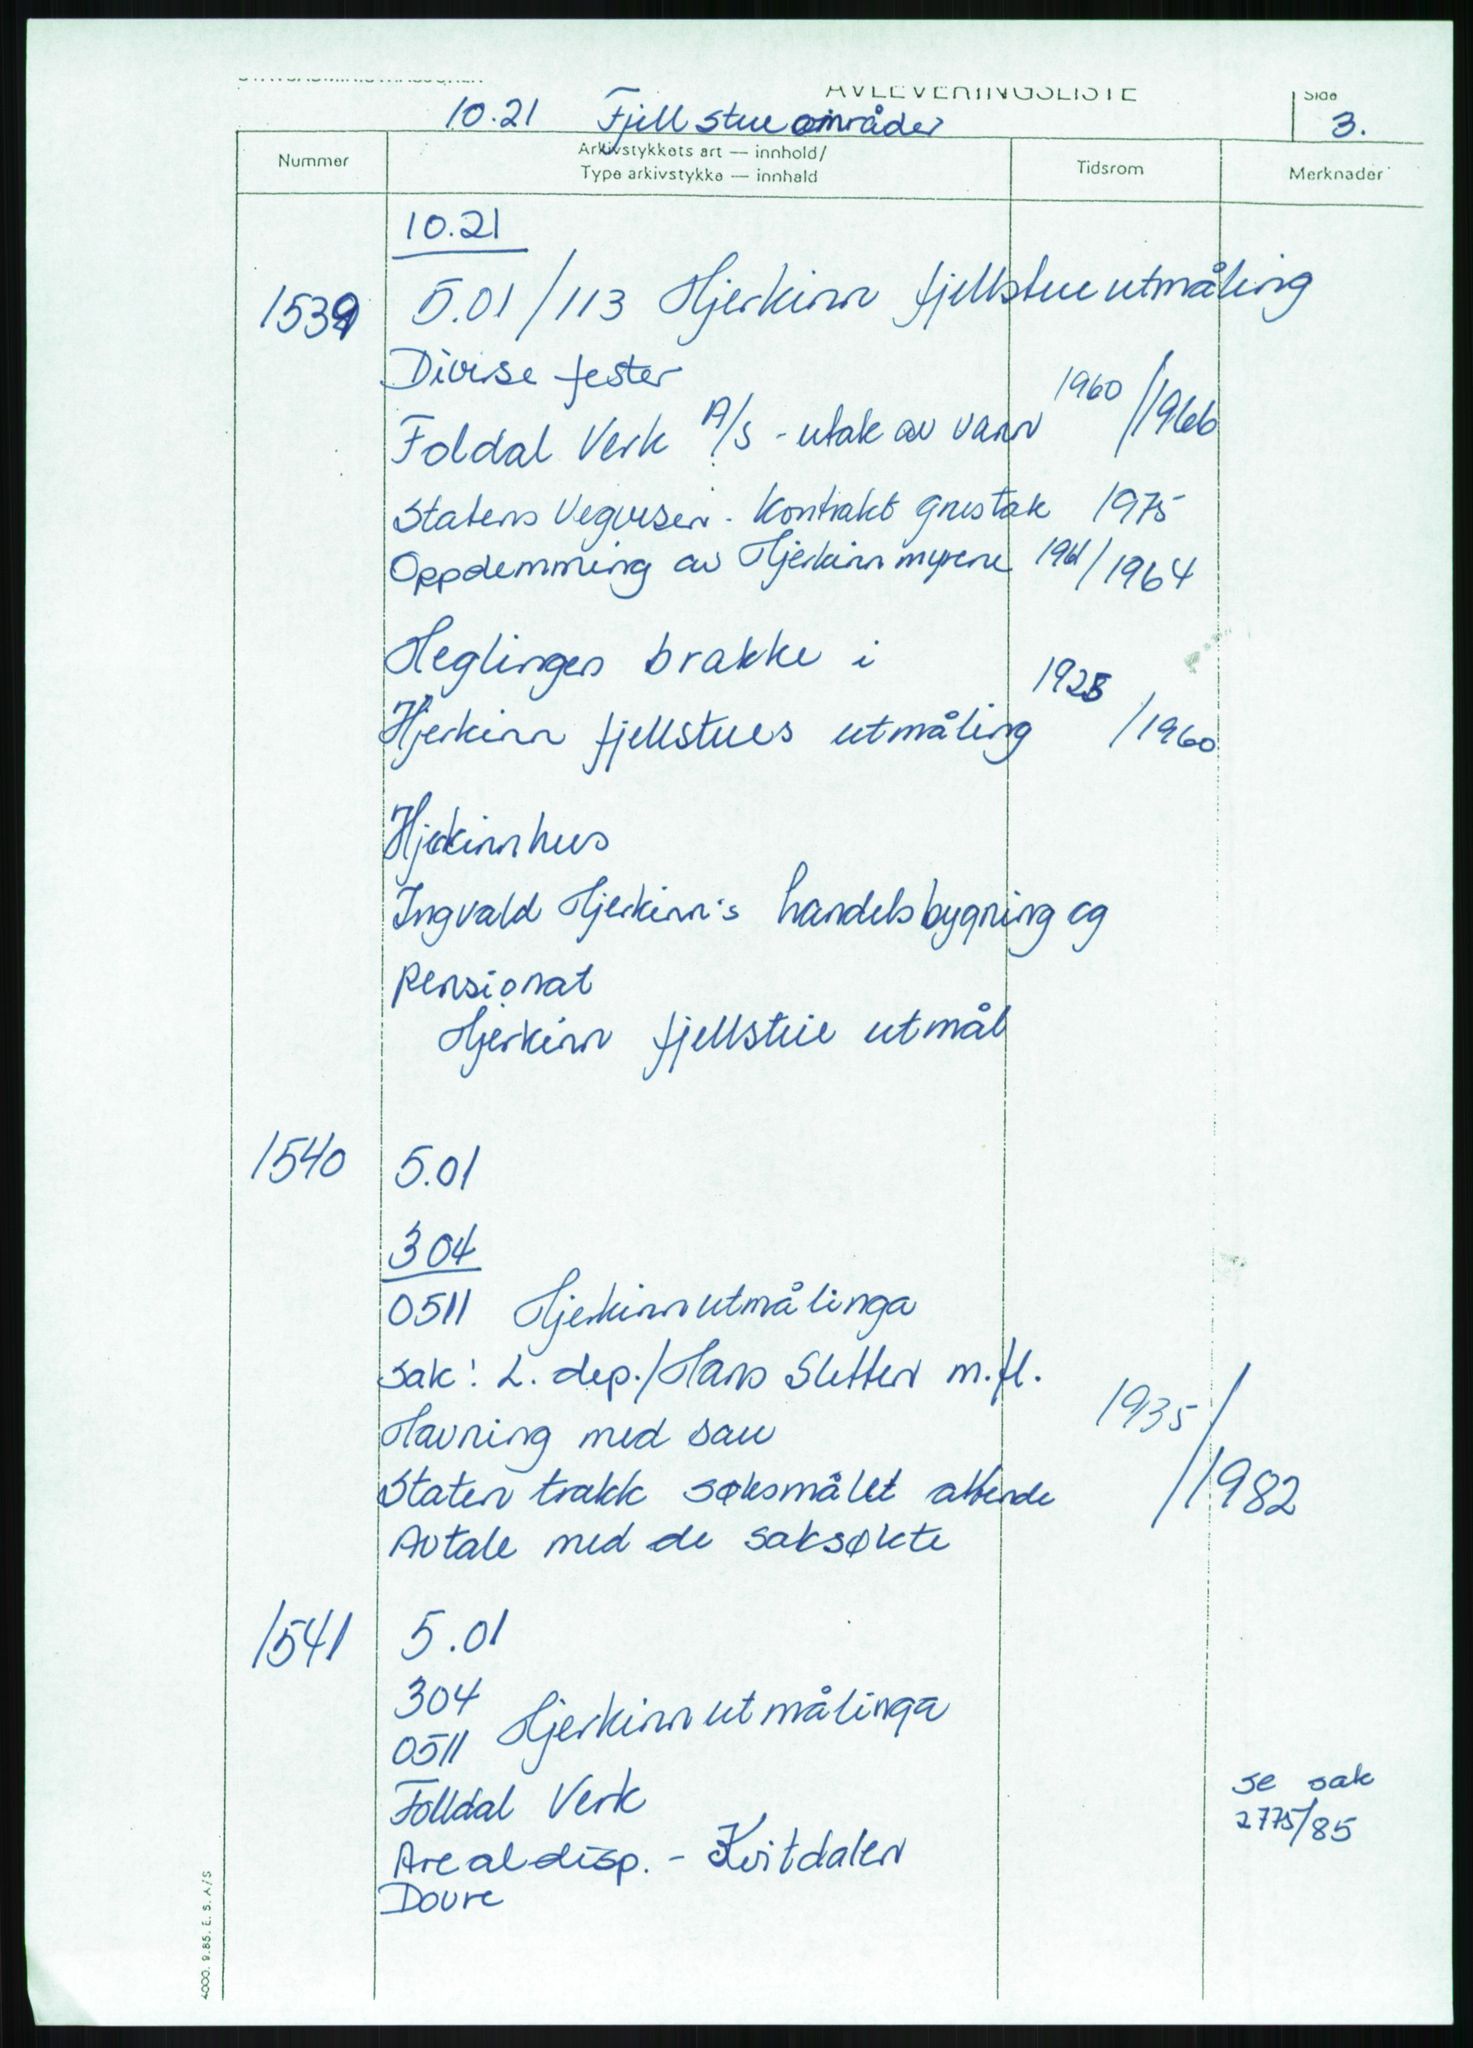 AVLEVERINGSLISTE
10.21 Fjellstueområder
Side
3.
Nummer
Arkivstykkets art — innhold/
Type arkivstykke — innhald
Tidsrom
Merknader
10.21
1539 5.01/113 Hjerkinn fjellstueutmåling
Diverse fester
Foldal Verk A/S - utak av vann 1960/1966
Statens Vegvesen. Kontrakt grustak 1975
Oppdemming av Hjerkinnmyrene 1961/1964
Heglingen brakke i
Hjerkinn fjellstues utmåling 1925/1960
Hjerkinnhus
Ingvald Hjerkinn's handelsbygning og
pensionat
Hjerkinn fjellstue utmål
1540 5.01
304
0511 Hjerkinnutmålinga
sak: L.dep./Hans Sletten m.fl.
Havning med sau 1935/
Staten trakk søksmålet attende /1982
Avtale med de saksøkte
1541 5.01
304
0511 Hjerkinnutmålinga
Folldal Verk
se sak
2775/85
Arealdisp. - Kvitdalen
Dovre
4000. 9.85. E. S. A/S